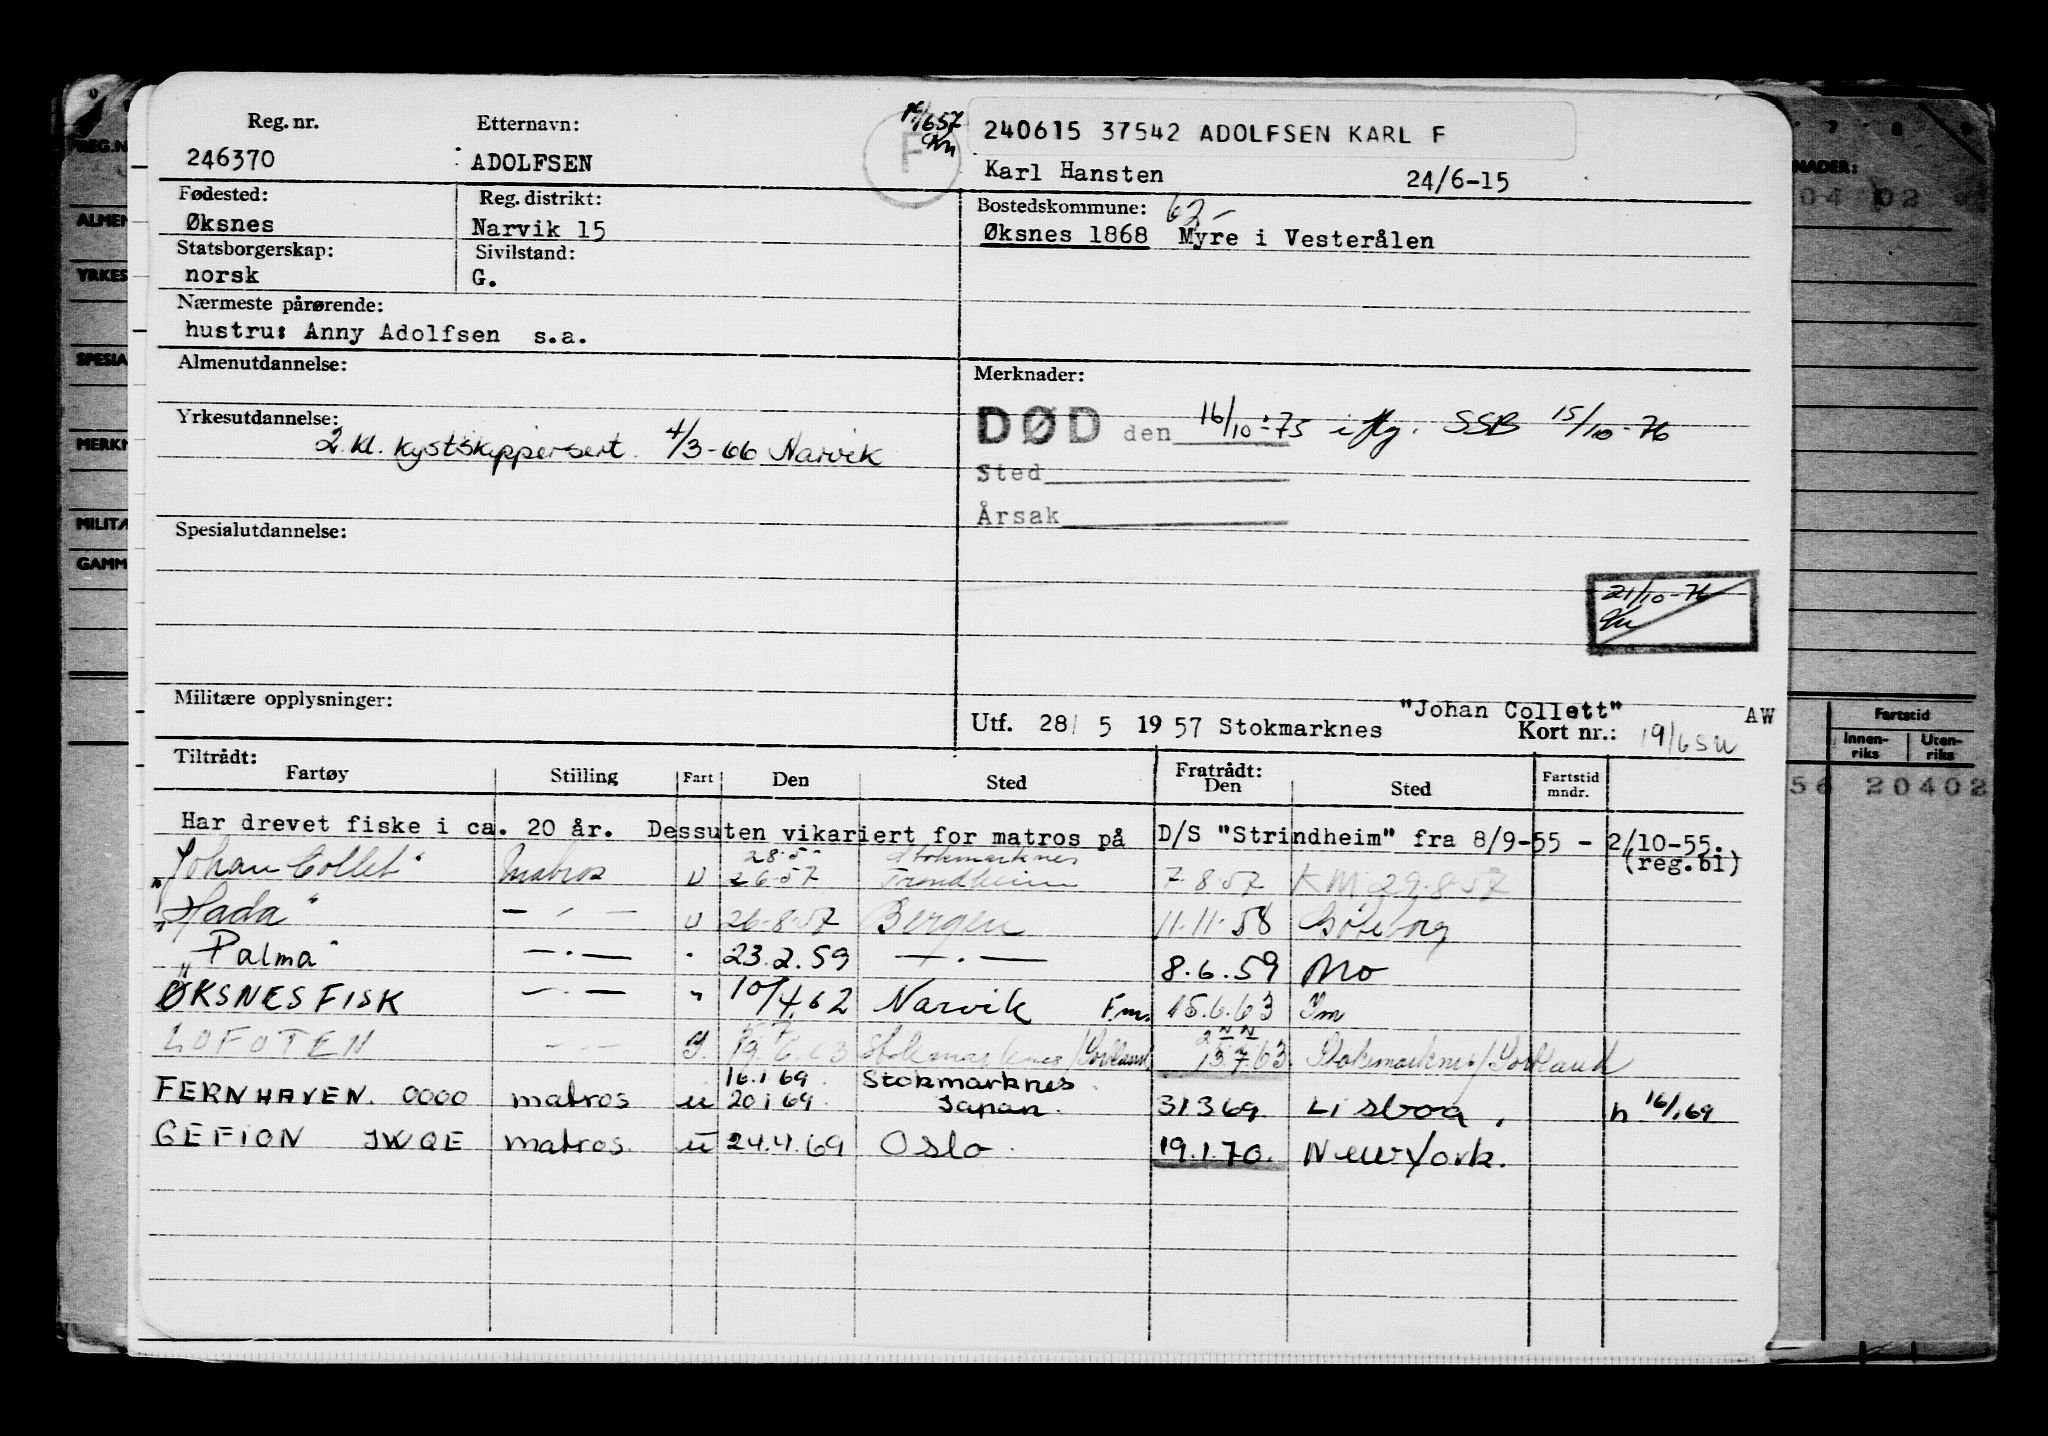 Reg. nr. Etternavn:
240615 37542 ADOLFSEN KARL F
246370 ADOLFSEN F Karl Hansten 24/6-15
Fødested: Reg. distrikt: Bostedskommune: 62-
Øksnes Narvik 15 Øksnes 1868 Myre i Vesterålen
Statsborgerskap: Sivilstand:
norsk G.
Nærmeste pårørende:
hustru: Anny Adolfsen s.a.
Almenutdannelse: Merknader:
Yrkesutdannelse: DØD den 16/10-75 iflg. SSB 15/10-76
2. kl. kystskippersert. 4/3-66 Narvik
Sted
Årsak
Spesialutdannelse:
21/10-76
Militære opplysninger: "Johan Collett" AW
Utf. 28/ 5 1957 Stokmarknes Kort nr.:
Tiltrådt: Fratrådt:
Fartøy Stilling Fart Den Sted Den Sted Fartstid mndr.
Har drevet fiske i ca. 20 år. Dessuten vikariert for matros på D/S "Strindheim" fra 8/9-55 - 2/10-55.
(reg.bl)
28.5- Stokmarknes
"Johan Collet" Matros U 2.6.57 Trondheim 7.8.57 KM 29.8.57
"Hada" - " - U 26-8-57 Bergen 11.11.58 Göteborg
"Palma" - . - " 23.2.59 - . - 8.6.59 Mo
ØKSNESFISK - . - " 10/4.62 Narvik F.m. 15.6.63 Fm
LOFOTEN - " - 19.6.63 Stokmarknes/Sortland 13.7.63 Stokmarknes/Sortland
16.1 69 Stokmarknes
FERNHAVEN. 0000 matros u 20 1 69 Japan. 31 3 69. Lisboa, n 16/1 69
GEFION JWQE matros. u 24.4.69 Oslo 19.1.70. New York.
REG.N
ALMEN
YRKES
SPESIA
MERKN
MILITÆ
GAMM
7 8 9
NADER:
04 02
Fartstid
Innen-riks Uten-riks
56 20402